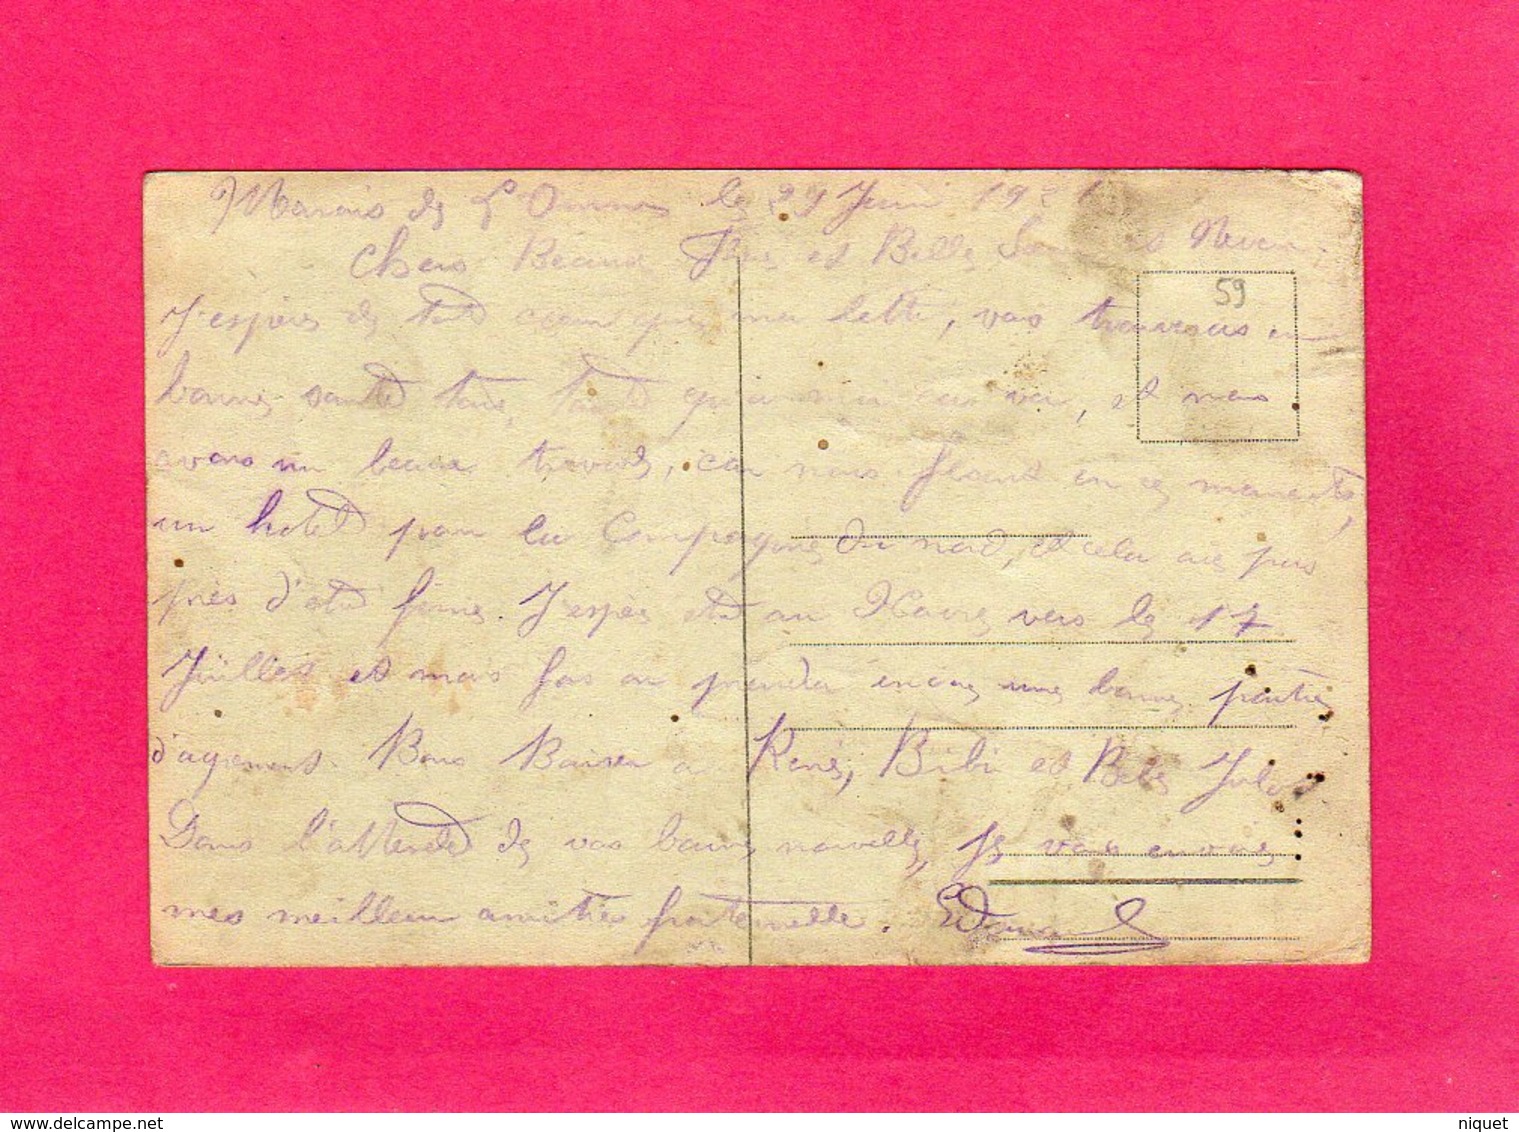 Marais de L'Ommes le 27 Juin 1921
Chers Beaux Frère et Belle Soeur et Neveux,
J'espère de tout coeur que ma lettre, vous trouveras en
bonne santé tous, tout qu'a moi ça va, et nous
avons un beaux travail, car nous fesons en ce moments,
un hotel pour la Compagnie du nord, et cela ais pas
près d'etre finie. J'espès etre au Havre vers le 17
Juillet et mois fos on prendra encore une bonne partie
d'agrement. Bons Baiser a René, Bibi et Bébé Jules
Dans l'attente de vos bonne nouvelle, je vous envoie
mes meilleur amitiés fraternelle. Edouard
59
niquet